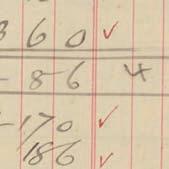 3 6 0 ✓
- 8 6 4
-170 ✓
186 ✓